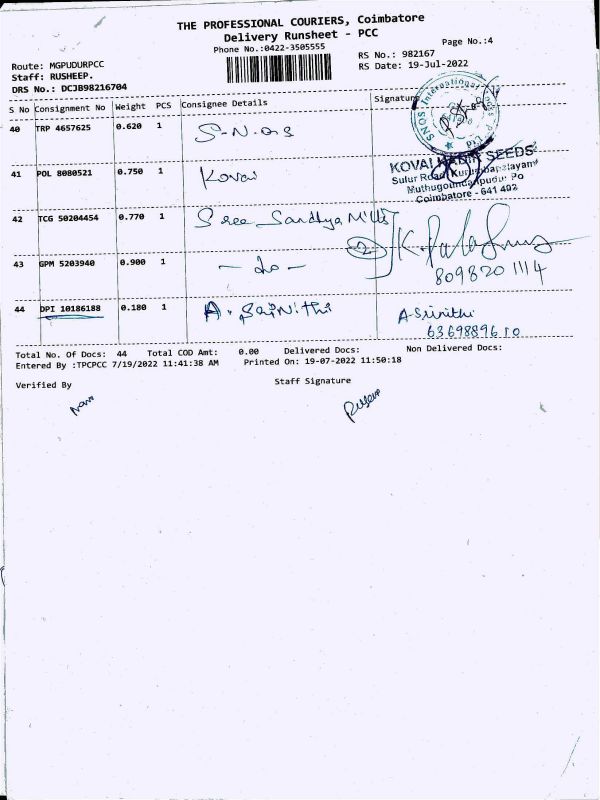 THE PROFESSIONAL COURIERS, Coimbatore
Delivery Runsheet - PCC
Phone No.:0422-3505555
Page No.:4
Route: MGPUDURPCC
RS No.: 982167
Staff: RUSHEEP.
RS Date: 19-Jul-2022
DRS No.: DCJB98216704
S No Consignment No Weight PCS Consignee Details Signature
40 TRP 4657625 0.620 1 S-N-OS
SNOS International
41 POL 8080521 0.750 1 Kovai
KOVAI SEEDS
Sulur Road
Muthugoundanpudur Po
Coimbatore - 641 402
42 TCG 50204454 0.770 1 Sree Sandhya Mills
2
43 GPM 5203940 0.900 1 - do -
8098201114
44 DPI 10186188 0.180 1 A. SaiNithi A Srinithi
6369889610
Total No. Of Docs: 44 Total COD Amt: 0.00 Delivered Docs: Non Delivered Docs:
Entered By :TPCPCC 7/19/2022 11:41:38 AM Printed On: 19-07-2022 11:50:18
Verified By Staff Signature